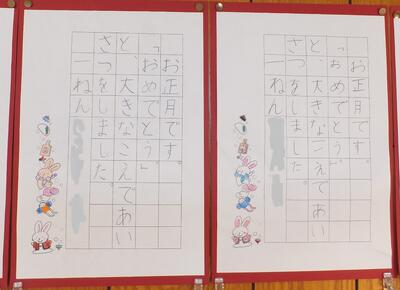 お正月です。
「おめでとう」
と、大きなこえであい
さつをしました。
一ねん
お正月です。
「おめでとう」
と、大きなこえであい
さつをしました。
一ねん